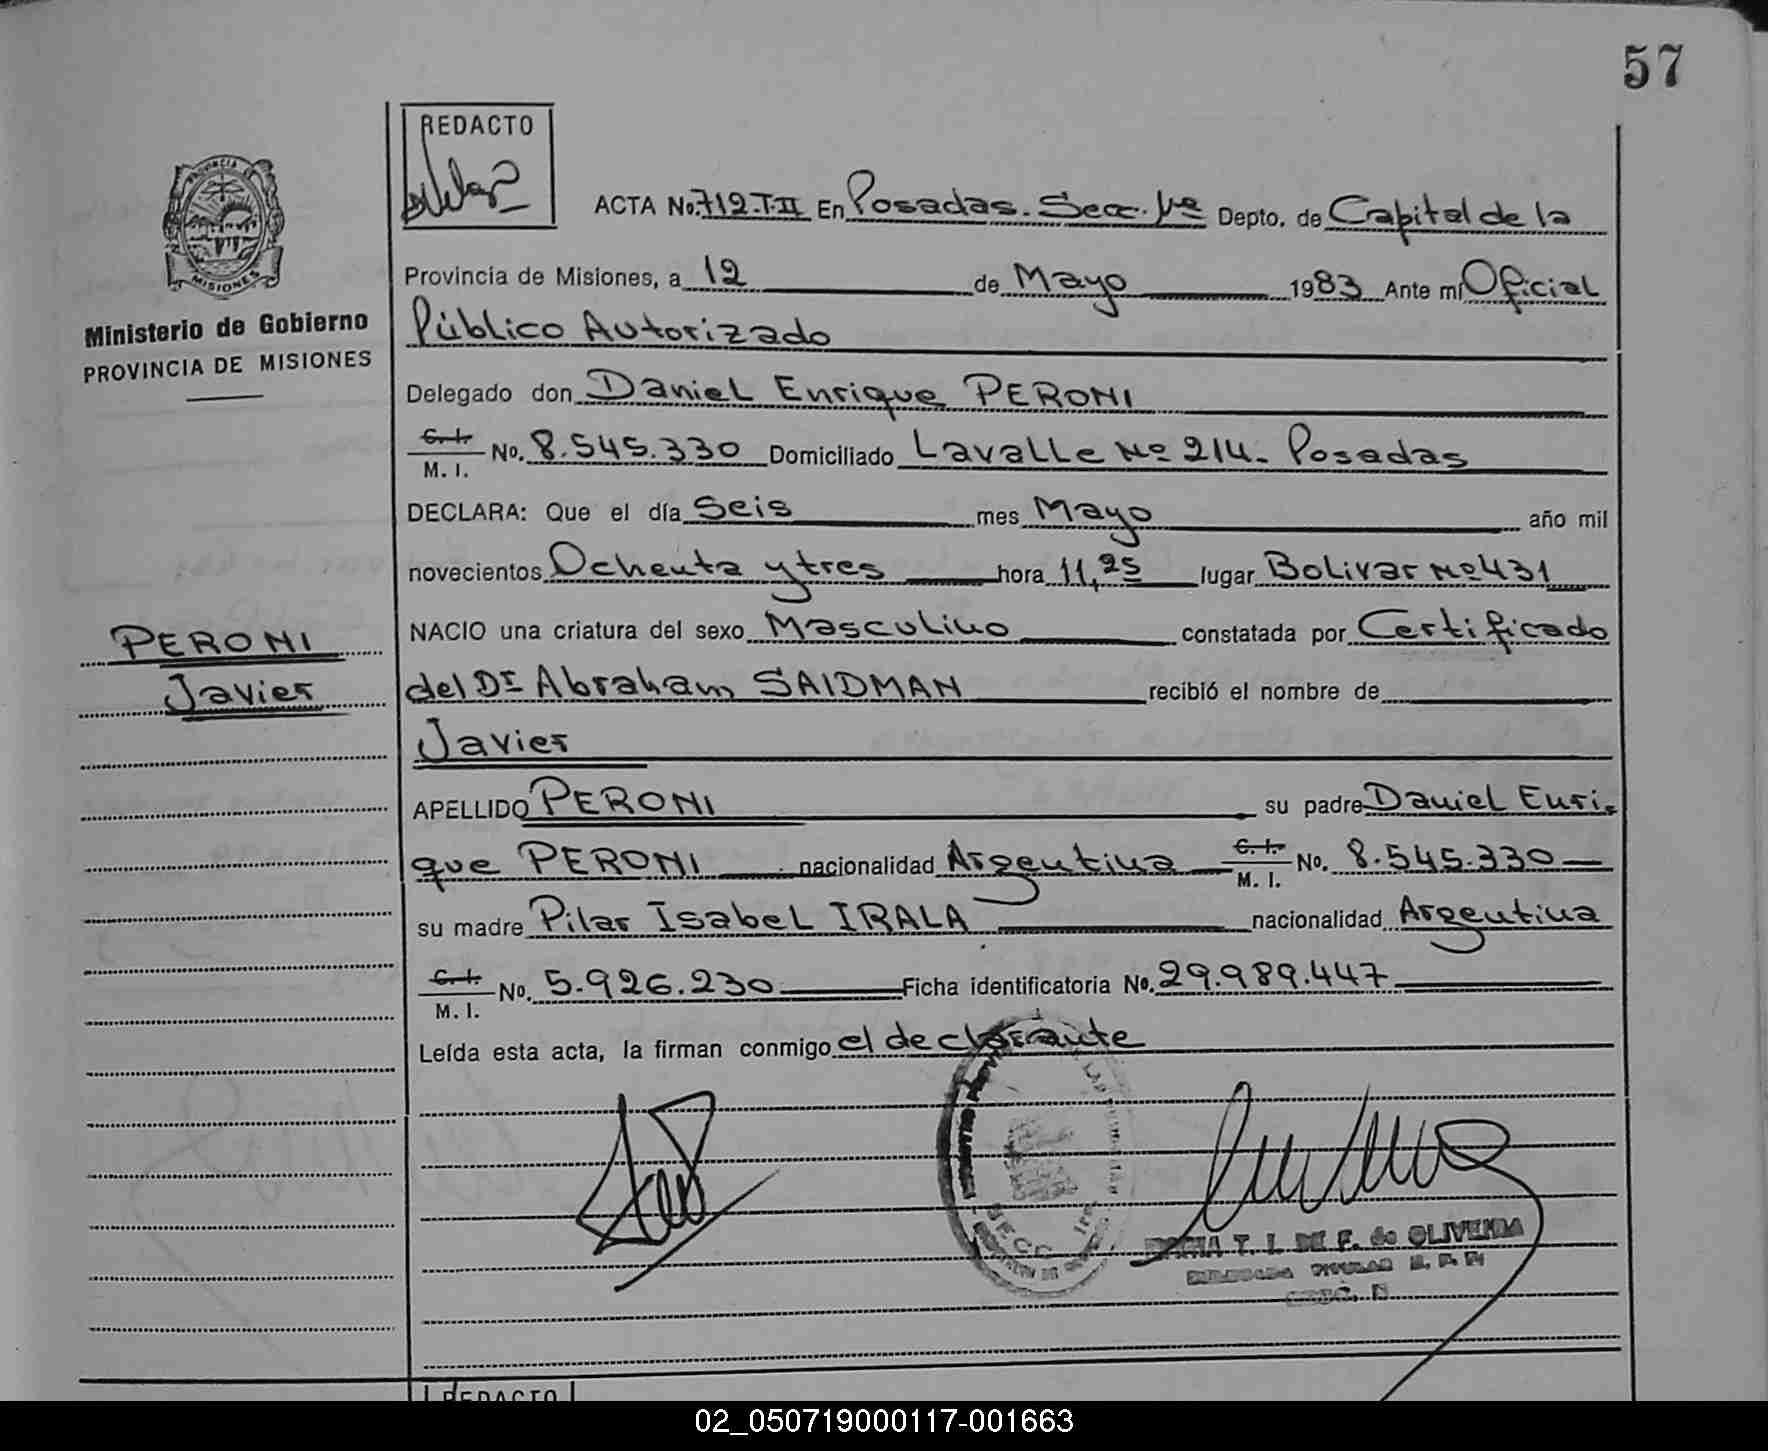 57
REDACTO
ACTA No. 712.T.II En Posadas. Secc. 1ra Depto. de Capital de la
PROVINCIA
MISIONES
Provincia de Misiones, a 12 de Mayo 1983 Ante mí Oficial
Ministerio de Gobierno
Público Autorizado
PROVINCIA DE MISIONES
Delegado don Daniel Enrique PERONI
C. I.
M. I. No. 8.545.330 Domiciliado Lavalle Nº 214. Posadas
DECLARA: Que el día Seis mes Mayo año mil
novecientos Ochenta y tres hora 11,25 lugar Bolivar Nº 431
NACIO una criatura del sexo Masculino constatada por Certificado
PERONI
Javier
del Dr Abraham SAIDMAN recibió el nombre de
Javier
APELLIDO PERONI su padre Daniel Enri-
que PERONI nacionalidad Argentina C. I. M. I. No. 8.545.330
su madre Pilar Isabel IRALA nacionalidad Argentina
C. I.
M. I. No. 5.926.230 Ficha identificatoria No. 29.989.447
Leída esta acta, la firman conmigo el declarante
SECC. 1ra
T. I. DE F. de OLIVEIRA
TITULAR
REDACTO
02_050719000117-001663